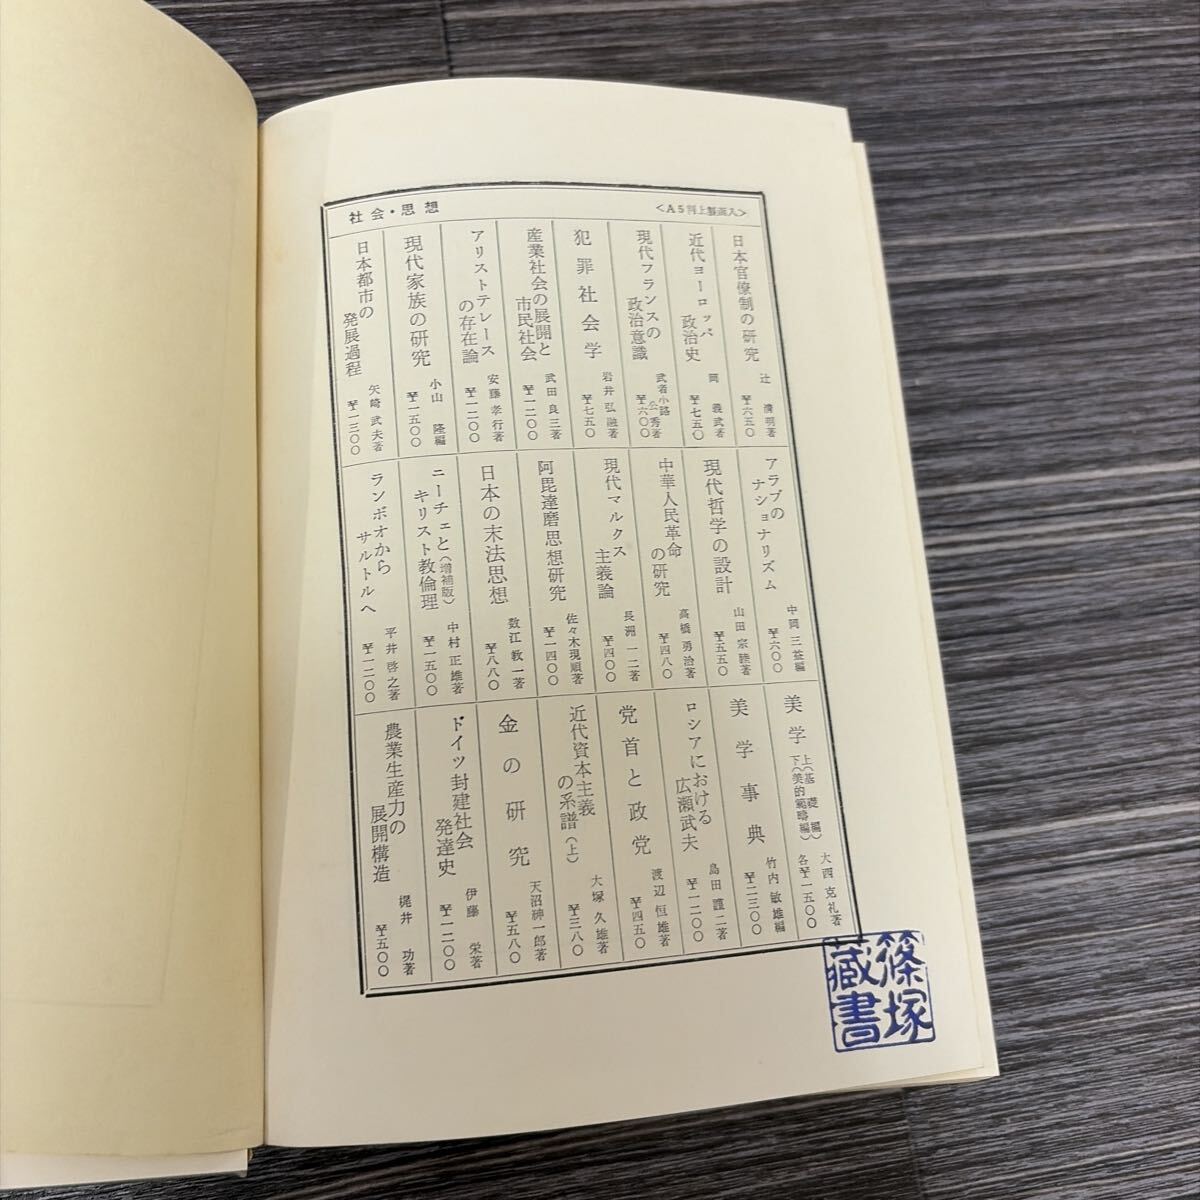 社会・思想
<A5判上製函入>
日本官僚制の研究
辻 清明著
¥六五〇
近代ヨーロッパ
政治史
岡 義武著
¥七五〇
現代フランスの
政治意識
武者小路
公秀著
¥六〇〇
犯罪社会学
岩井弘融著
¥七五〇
産業社会の展開と
市民社会
武田良三著
¥一二〇〇
アリストテレース
の存在論
安藤孝行著
¥一二〇〇
現代家族の研究
小山 隆編
¥一五〇〇
日本都市の
発展過程
矢崎武夫著
¥一三〇〇
アラブの
ナショナリズム
中岡三益編
¥六〇〇
現代哲学の設計
山田宗睦著
¥五五〇
中華人民革命
の研究
高橋勇治著
¥四八〇
現代マルクス
主義論
長洲一二著
¥四〇〇
阿毘達磨思想研究
佐々木現順著
¥一四〇〇
日本の末法思想
数江教一著
¥八八〇
ニーチェと(増補版)
キリスト教倫理
中村正雄著
¥一五〇〇
ランボオから
サルトルへ
平井啓之著
¥一二〇〇
美学 上(基礎編)
下(美的範疇編)
大西克礼著
各¥一五〇〇
美学事典
竹内敏雄編
¥二三〇〇
ロシアにおける
広瀬武夫
島田謹二著
¥一二〇〇
党首と政党
渡辺恒雄著
¥四五〇
近代資本主義
の系譜(上)
大塚久雄著
¥三八〇
金の研究
天沼紳一郎著
¥五八〇
ドイツ封建社会
発達史
伊藤 栄著
¥一二〇〇
農業生産力の
展開構造
梶井 功著
¥五〇〇
篠塚
蔵書